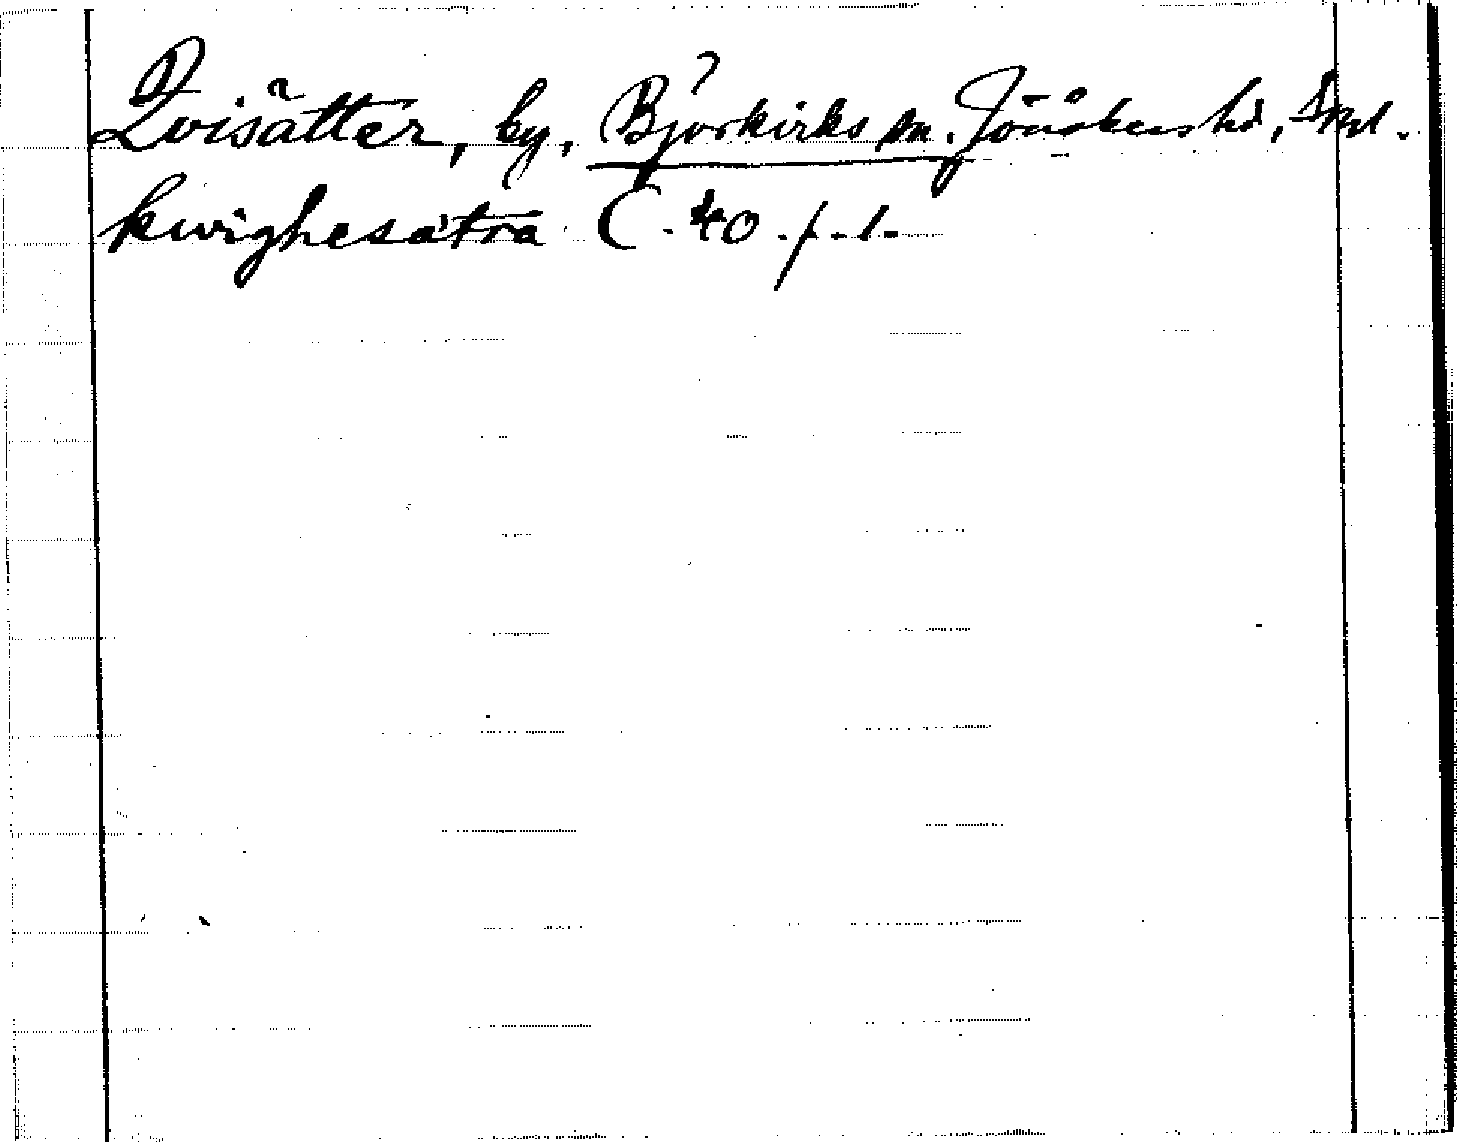 Qvisätter, by, Björkviks sn. Jönåkers hd, Söd.
kwighesätra C. 40 f. 1.